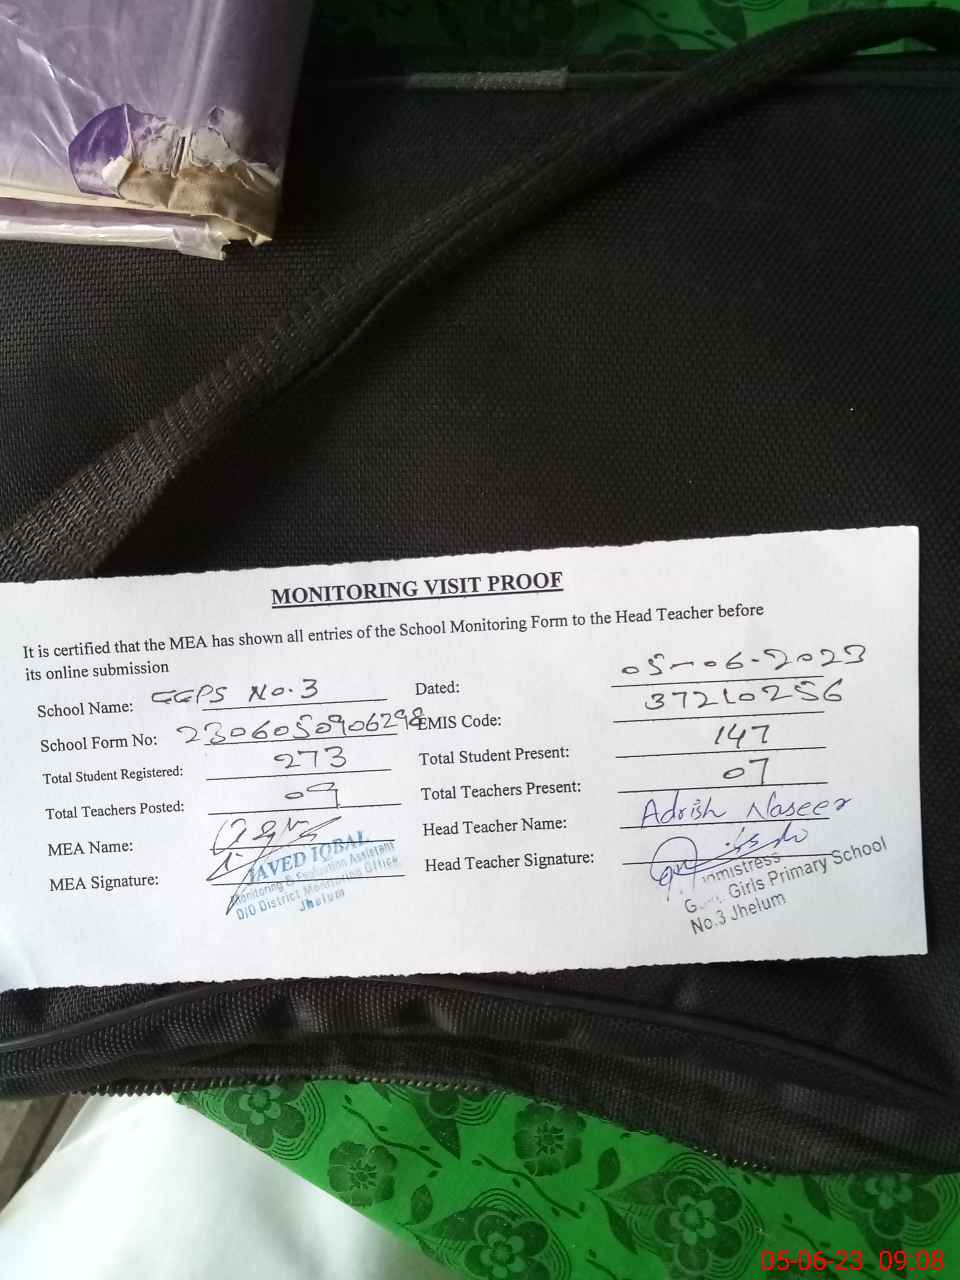 MONITORING VISIT PROOF
It is certified that the MEA has shown all entries of the School Monitoring Form to the Head Teacher before
its online submission
School Name: GGPS No.3 Dated: 05-06-2023
School Form No: 2306050906298 EMIS Code: 37210256
Total Student Registered: 273 Total Student Present: 147
Total Teachers Posted: 09 Total Teachers Present: 07
MEA Name: Head Teacher Name: Adrish Naseer
MEA Signature: Head Teacher Signature:
JAVED IQBAL
Monitoring & Evaluation Assistant
O/O District Monitoring Office
Jhelum
Girls Primary School
No.3 Jhelum
05-06-23 09.08